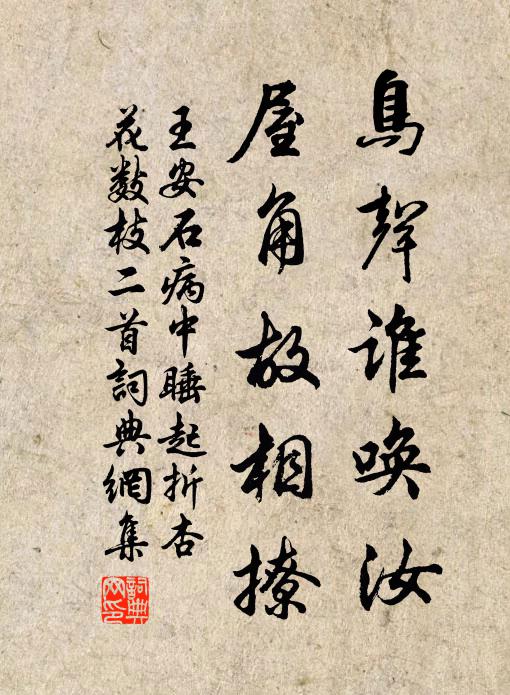 鳥聲誰喚汝
屋角故相撩
王安石病中睡起折杏
花數枝二首詞典網集
詞典網印